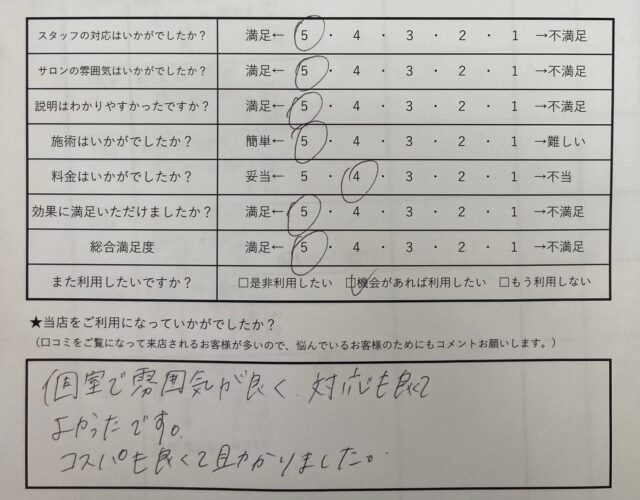 スタッフの対応はいかがでしたか？ 満足← 5 ・ 4 ・ 3 ・ 2 ・ 1 →不満足
サロンの雰囲気はいかがでしたか？ 満足← 5 ・ 4 ・ 3 ・ 2 ・ 1 →不満足
説明はわかりやすかったですか？ 満足← 5 ・ 4 ・ 3 ・ 2 ・ 1 →不満足
施術はいかがでしたか？ 簡単← 5 ・ 4 ・ 3 ・ 2 ・ 1 →難しい
料金はいかがでしたか？ 妥当← 5 ・ 4 ・ 3 ・ 2 ・ 1 →不当
効果に満足いただけましたか？ 満足← 5 ・ 4 ・ 3 ・ 2 ・ 1 →不満足
総合満足度 満足← 5 ・ 4 ・ 3 ・ 2 ・ 1 →不満足
また利用したいですか？ □是非利用したい □機会があれば利用したい □もう利用しない
★当店をご利用になっていかがでしたか？
（口コミをご覧になって来店されるお客様が多いので、悩んでいるお客様のためにもコメントお願いします。）
個室で雰囲気が良く、対応も良くて
よかったです。
コスパも良くて助かりました。